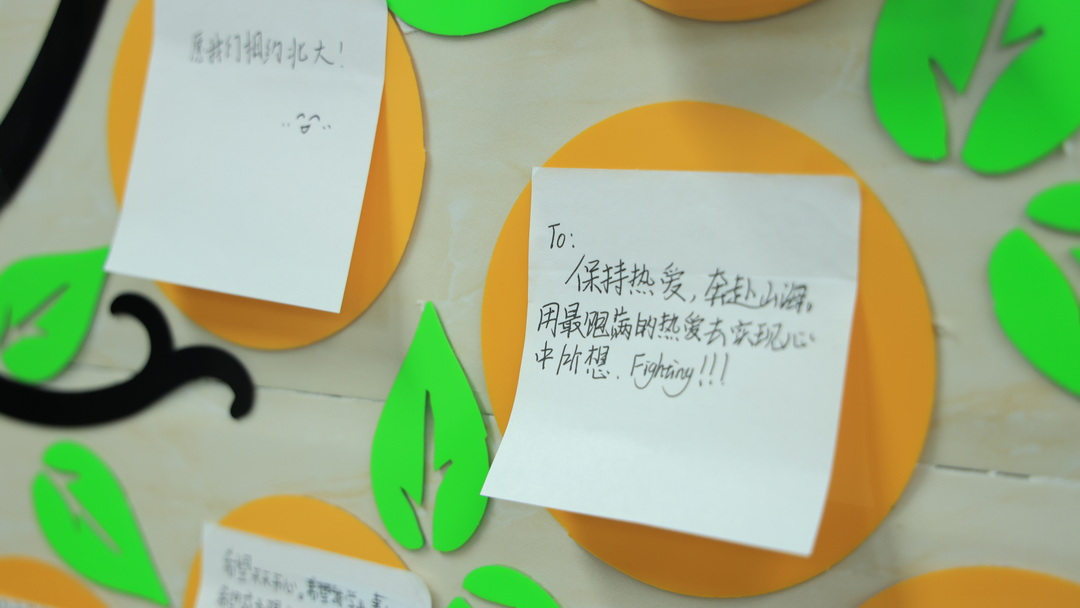 愿我们相约北大!
To:
保持热爱,奔赴山海。
用最饱满的热爱去实现心
中所想. Fighting!!!
希望天天开心,希望